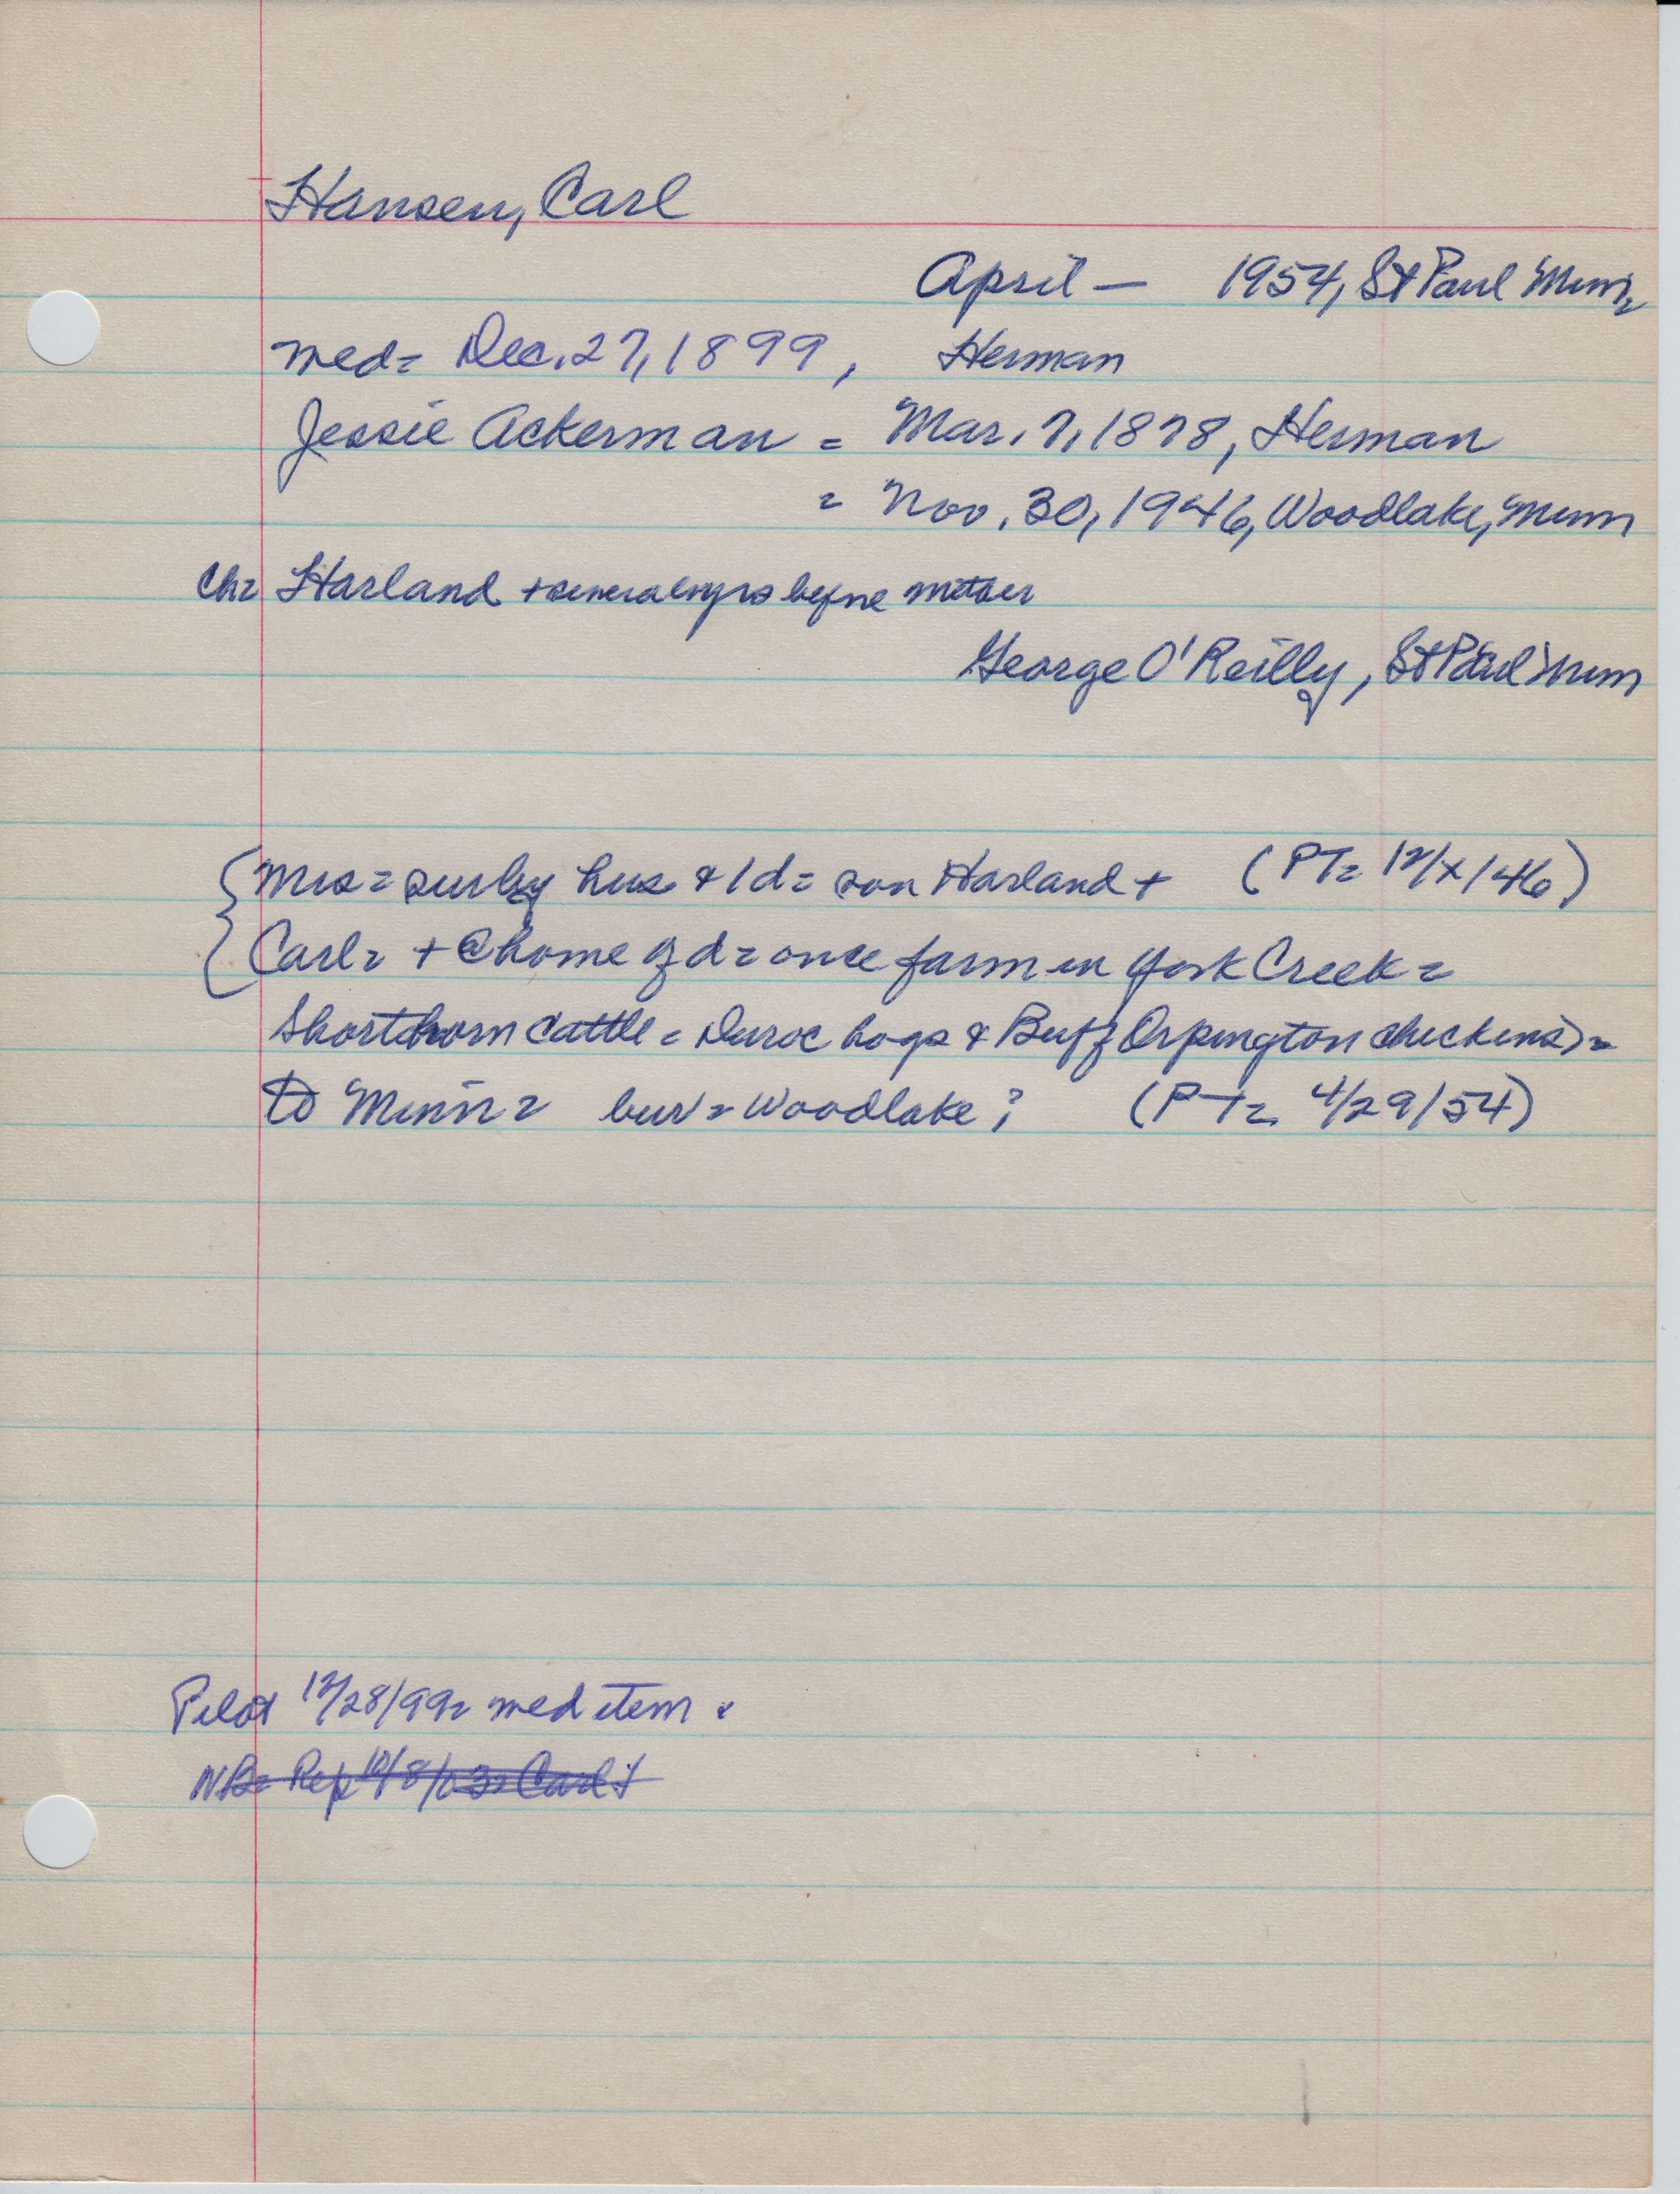 Hansen, Carl
April — 1954, St Paul Minn
med= Dec. 27, 1899, Herman
Jessie Ackerman = Mar. 7, 1878, Herman
= Nov. 30, 1946, Woodlake, Minn
Ch= Harland + several yrs before mother
George O'Reilly, St Paul Minn
{ Mrs = surby hus & 1 d = son Harland + (PT= 12/x/46)
Carl= + @ home of d = once farm in York Creek =
Shorthorn cattle = Duroc hogs & Buff Orpington chickens) =
to Minn = bur = Woodlake; (PT= 4/29/54)
Pilot 12/28/99= med item
NB= Rep 10/8/03= Carl